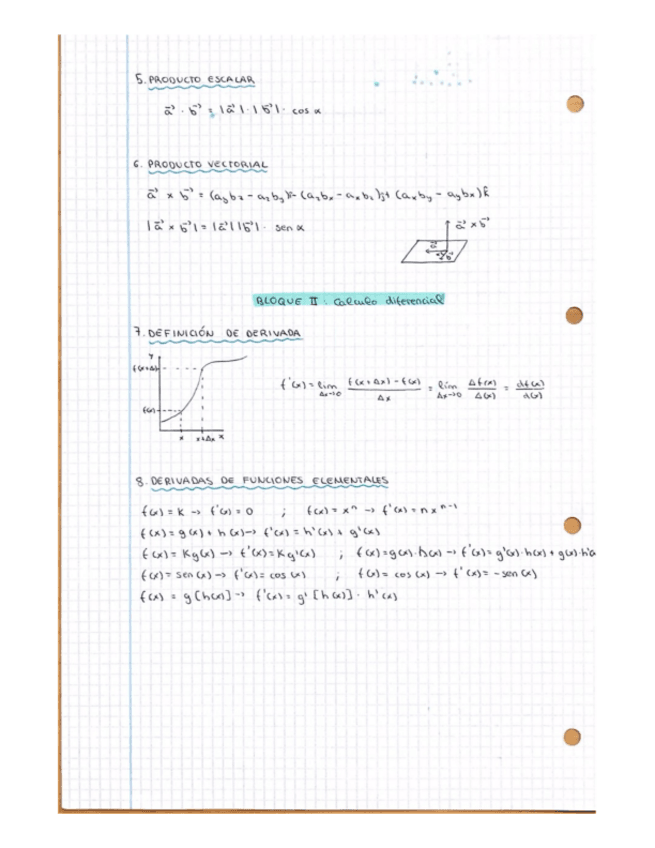 5. PRODUCTO ESCALAR
a⃗ · b⃗ = |a⃗|·|b⃗|· cos α
6. PRODUCTO VECTORIAL
a⃗ x b⃗ = (aybz - azby)i - (azbx - axbz)j + (axby - aybx)k
|a⃗ x b⃗| = |a⃗||b⃗|· sen α
a⃗ x b⃗
a⃗
b⃗
BLOQUE II : Calculo diferencial
7. DEFINICIÓN DE DERIVADA
Y
f(x+Δ)
f(x)
x x+Δx x
f'(x) = lim Δx→0 (f(x+Δx) - f(x))/Δx = lim Δx→0 Δf(x)/Δ(x) = df(x)/d(x)
8. DERIVADAS DE FUNCIONES ELEMENTALES
f(x) = K → f'(x) = 0 ; f(x) = xⁿ → f'(x) = n xⁿ⁻¹
f(x) = g(x) + h(x) → f'(x) = h'(x) + g'(x)
f(x) = Kg(x) → f'(x) = Kg'(x) ; f(x) = g(x)·h(x) → f'(x) = g'(x)·h(x) + g(x)·h'(x
f(x) = sen(x) → f'(x) = cos(x) ; f(x) = cos(x) → f'(x) = -sen(x)
f(x) = g[h(x)] → f'(x) = g'[h(x)] · h'(x)